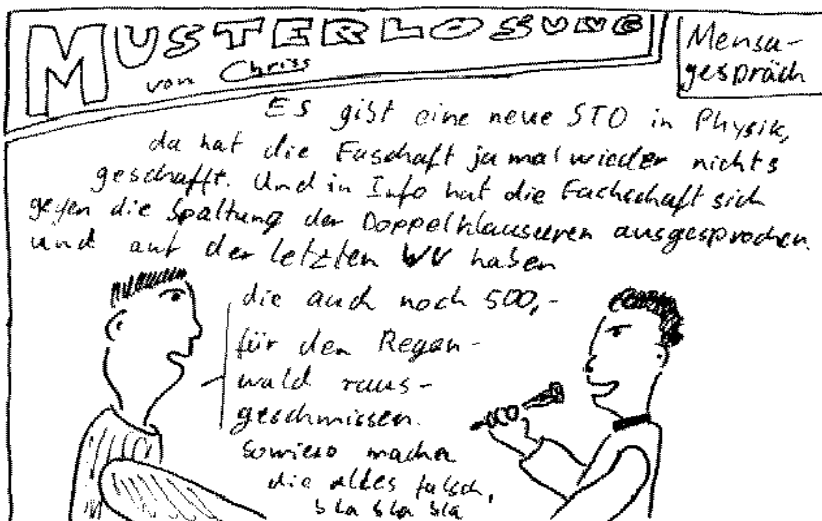 MUSTERLOSUNG
von Chriss
Mensa-
gespräch
ES gibt eine neue STO in Physik,
da hat die Faschaft ja mal wieder nichts
geschafft. Und in Info hat die Fachschaft sich
gegen die Spaltung der Doppelklausuren ausgesprochen.
und auf der letzten VV haben
die auch noch 500,-
für den Regen-
wald raus-
geschmissen.
Sowieso machen
die alles falsch,
bla bla bla